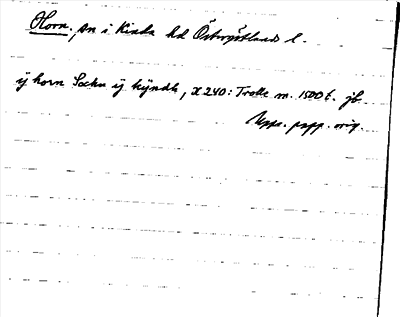 Horn, sn i Kinda hd Östergötlands l.
ij horn Sochn ij kyndh, X 240: Trolle m. 1500 t. jb
Upps. papp. orig.